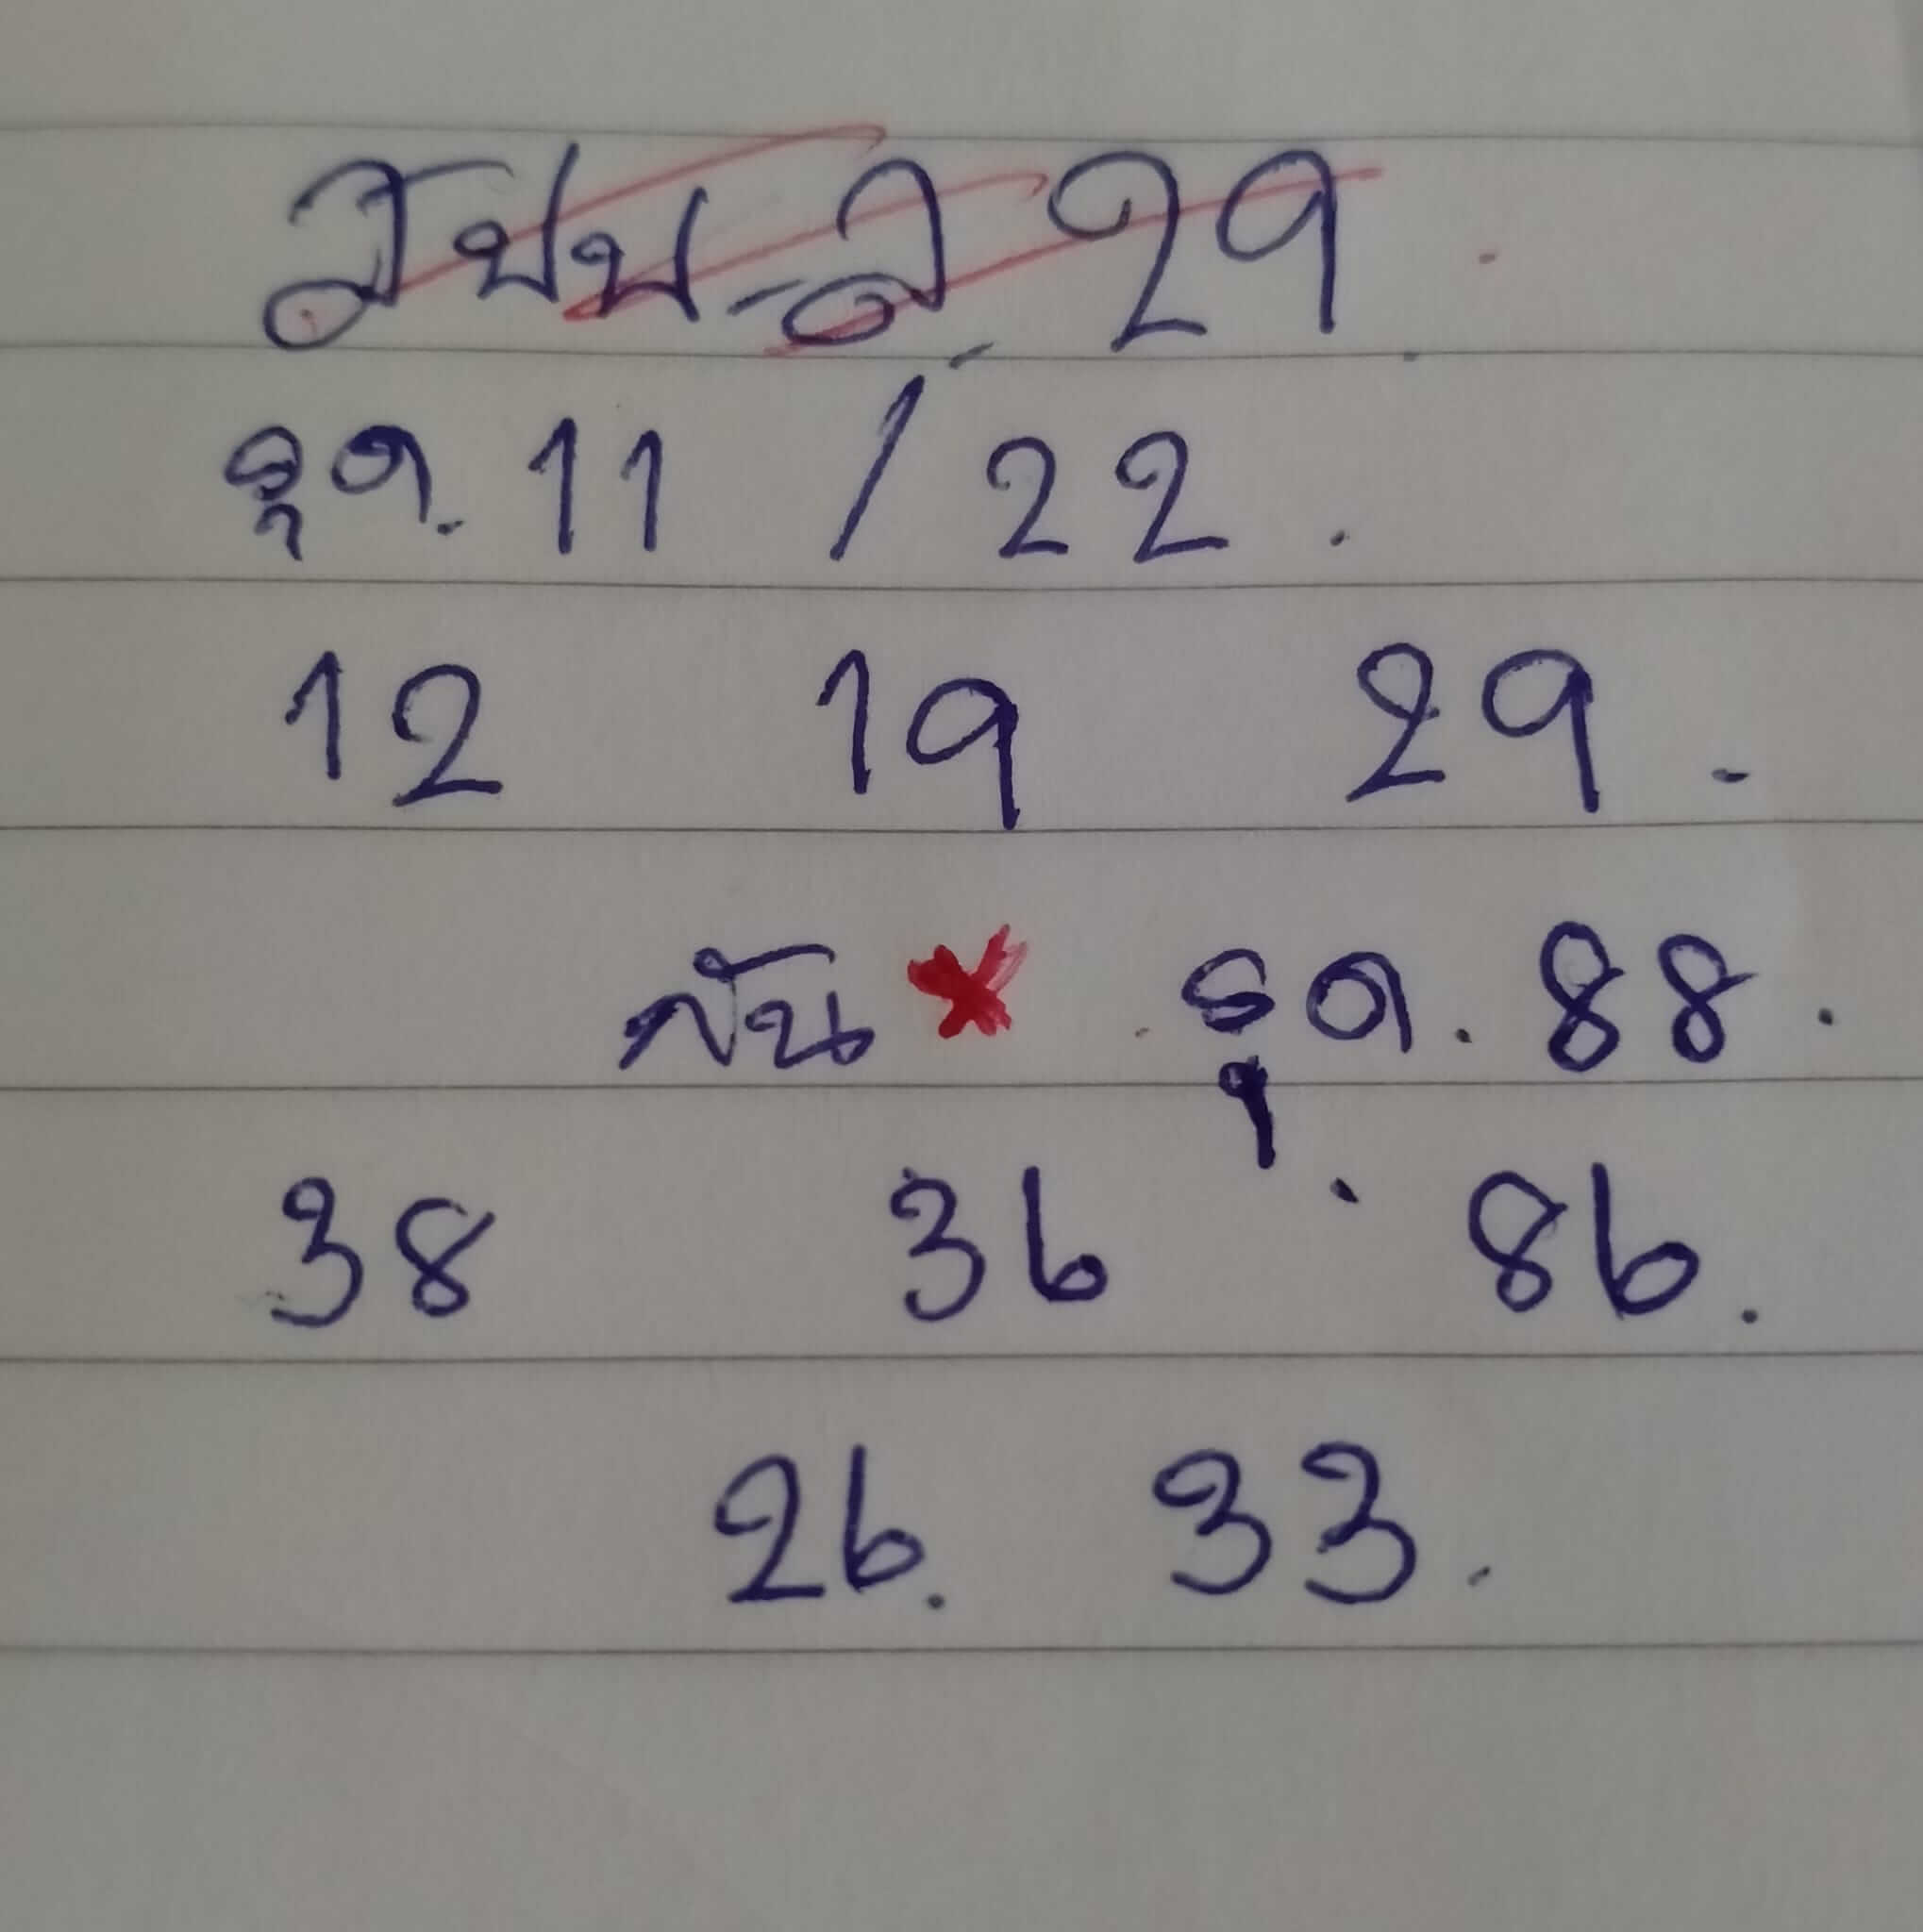 29
รูด. 11 / 22.
12 19 29.
กัน รูด. 88.
38 36 86.
26. 33.